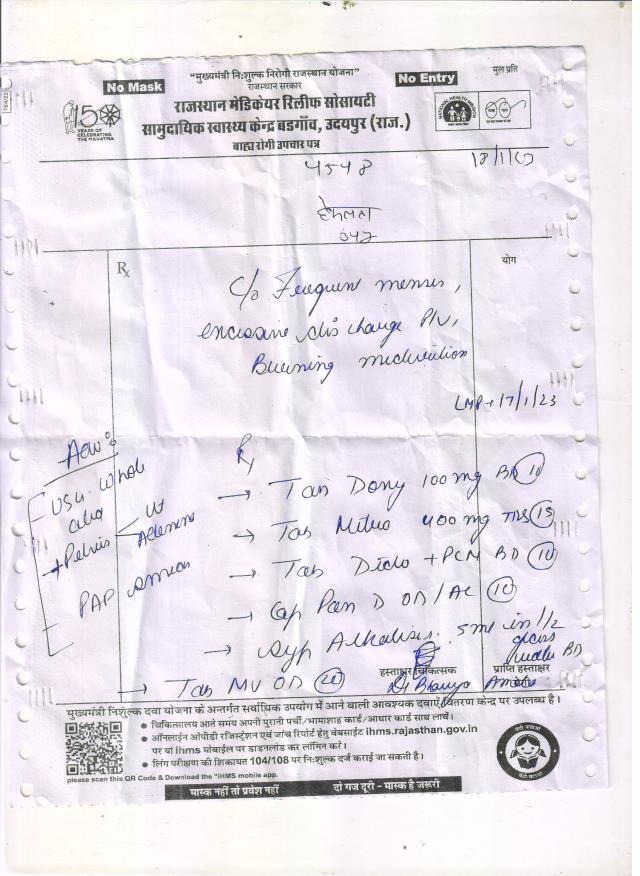 "मुख्यमंत्री निःशुल्क निरोगी राजस्थान योजना"
मुल प्रति
No Mask
राजस्थान सरकार
No Entry
राजस्थान मेडिकेयर रिलीफ सोसायटी
सामुदायिक स्वास्थ्य केन्द्र बडगाँव, उदयपुर (राज.)
बाह्य रोगी उपचार पत्र
YEARS OF
CELEBRATING
THE MAHATMA
NATIONAL HEALTH MISSION
4548
हेमलता
Rx
योग
c/o Frequent menses,
excessive discharge P/V,
Burning micturition
LMP → 17/1/23
Adv:
USG whole
abd
+ Pelvis
PAP smear
Rx
→ Tab Doxy 100 mg BD 10
→ Tab Metro 400 mg TDS 15
→ Tab Diclo + PCM BD 10
→ Cap Pan D OD/AC 10
→ Syp Alkaliser 5ml in 1/2
glass
water BD
हस्ताक्षर चिकित्सक
प्राप्ति हस्ताक्षर
→ Tab MV OD 20
Dr Bhavya
मुख्यमंत्री निशुल्क दवा योजना के अन्तर्गत सर्वाधिक उपयोग में आने वाली आवश्यक दवाएं वितरण केन्द्र पर उपलब्ध है।
• चिकित्सालय आते समय अपनी पुरानी पर्ची/भामाशाह कार्ड/आधार कार्ड साथ लावें।
• ऑनलाईन ओपीडी रजिस्ट्रेशन एवं जांच रिपोर्ट हेतु वेबसाईट ihms.rajasthan.gov.in
पर या ihms मोबाईल पर डाउनलोड कर लॉगिन करे।
• लिंग परीक्षण की शिकायत 104/108 पर निःशुल्क दर्ज कराई जा सकती है।
please scan this QR Code & Download the "iHMS mobile app.
मास्क नहीं तो प्रवेश नहीं
दो गज दूरी - मास्क है जरूरी